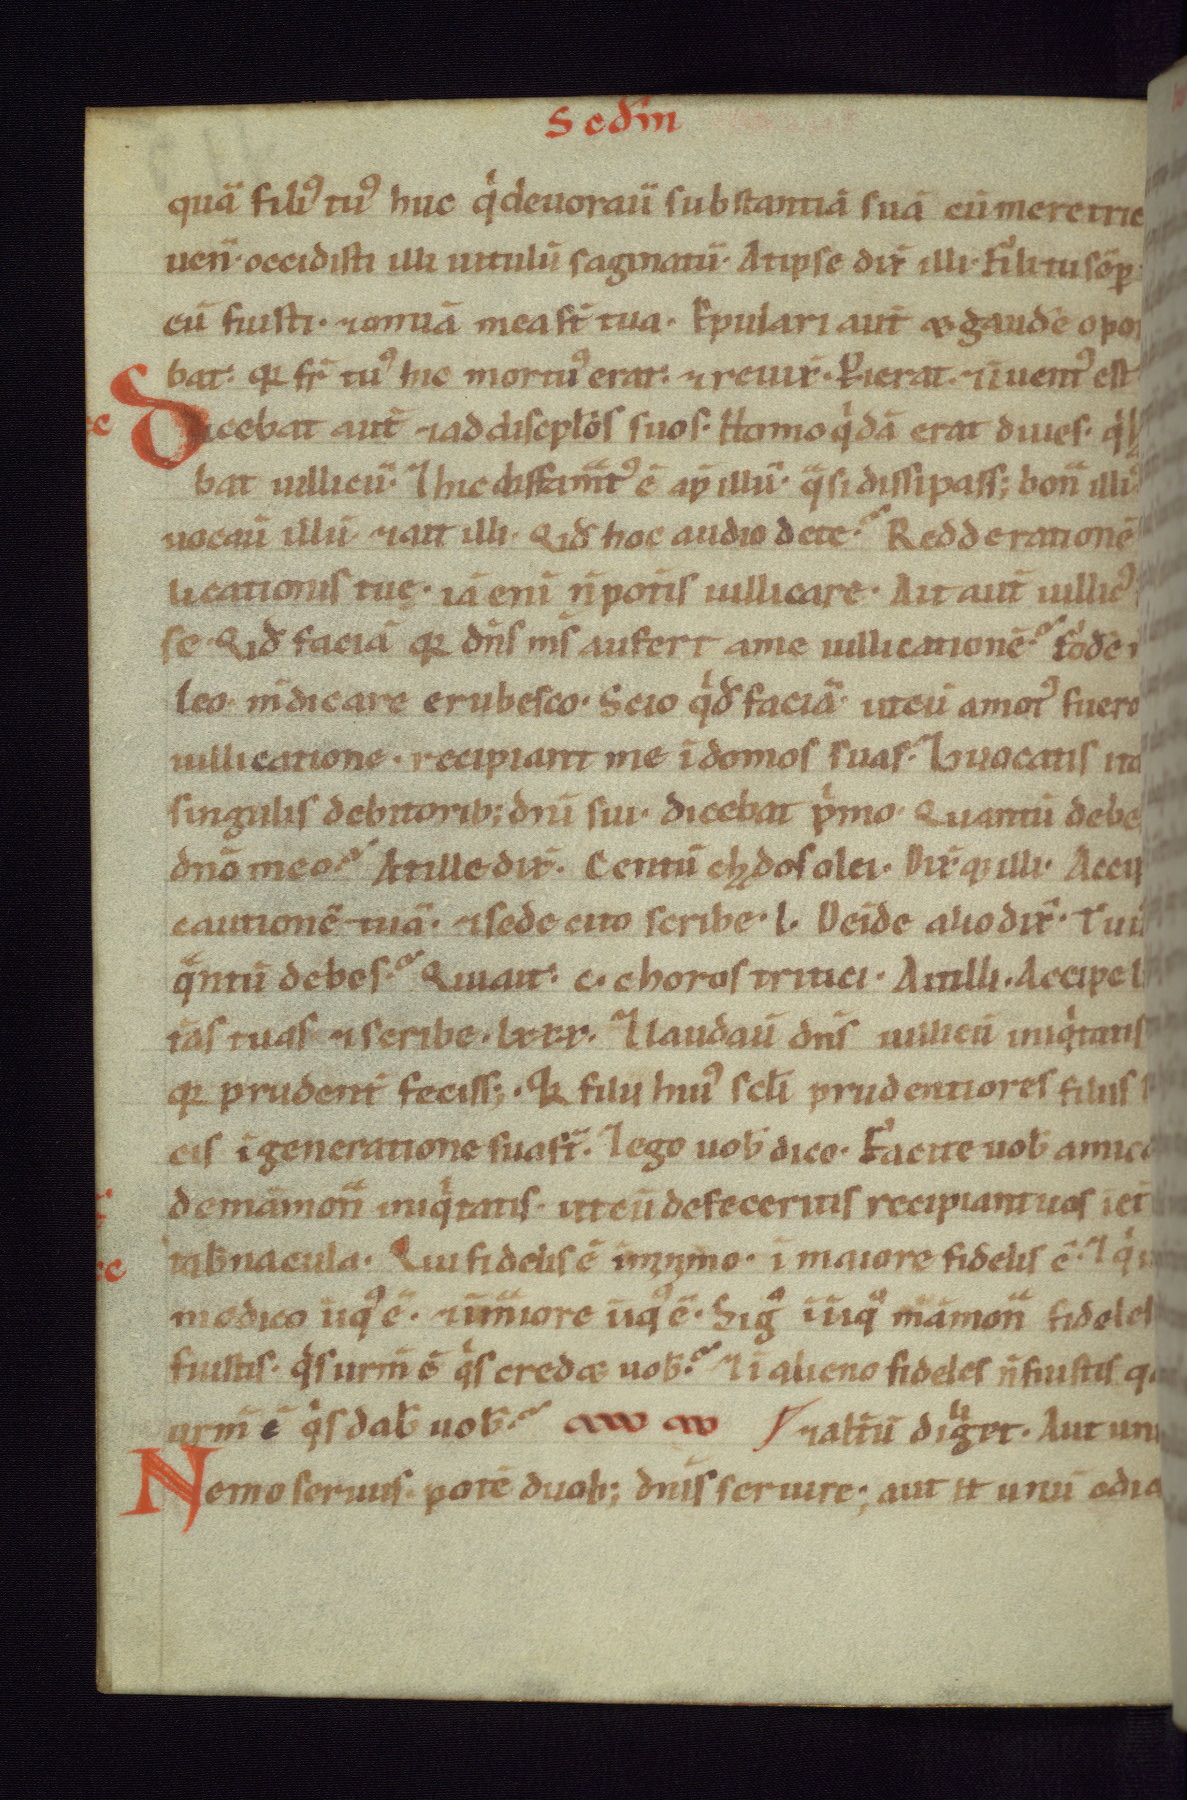 Scdm̄
quā filiꝰ tuꝰ huc qi deuorauı̄ substantiā suā cū meretric
uen̄· occidisti illi uitulū saginatū· At ipse dix̄ illi· Fili tu sēp
cū fuisti· ⁊ om̄ia mea sr̄ tua· Epulari aut̄ & gaudē opor
bat· qr fr̄ tuꝰ hic mortuꝰ erat· ⁊ reuix̄· Pierat· ⁊ iuentꝰ est
Dicebat aut̄ ⁊ ad disciplōs suos· Homo qi dā erat diues· qi h
bat uillicū· ⁊ hic diffamatꝰ ē ap̄ illū· qa si dissipass; bona illiꝰ
uocauı̄ illū ⁊ ait illi· Qid hoc audio de te· Redde rationē
licationis tuę· iā eni n̄ potis uillicare· Ait aut̄ uillicꝰ
se· Qid faciā qr dn̄s ms̄ aufert a me uillicationē· Fode
leo· m̄dicare erubesco· Scio qid faciā· ut cū amotꝰ fuero
uillicatione· recipiant me ı̄ domos suas· Conuocatis ita
singulis debitorib; dn̄i sui· dicebat pimo· Quantū debe
dn̄o meo· At ille dix̄· Centū chados olei· Dix̄ q; illi· Accip
cautionē tuā· ⁊ sede cito scribe· l· Deı̄de alio dix̄· Tu u
qantū debes· Qui ait· c· choros tritici· Ait illi· Accipe l
ras tuas ⁊ scribe· lxxx· ⁊ laudauı̄ dn̄s uillicū iniqitatis
qr prudent̄ feciss;· qr filii huiꝰ sc̄li prudentiores filiis
cis ı̄ generatione sua sr̄· ⁊ ego uob̄ dico· Facite uob̄ amico
de māmona iniqitatis· ut cū defeceritis recipiant uos ı̄ et
tab̄nacula· Qui fidelis ē ı̄ minimo· ı̄ maiore fidelis ē· ⁊ qi
modico iniqꝰ ē· ⁊ ı̄ maiore iniqꝰ ē· Si gͦ ı̄ iniqͦ māmona fideles
fuistis· qis urm̄ ē qis credæ uob̄· ⁊ ı̄ alieno fideles n̄ fuistis q
urm̄ ē qis dab̄ uob̄· ⁊ alt̄ū diliget· Aut un
Nemo seruus potē duob; dn̄is seruire; aut n̄ unū odi